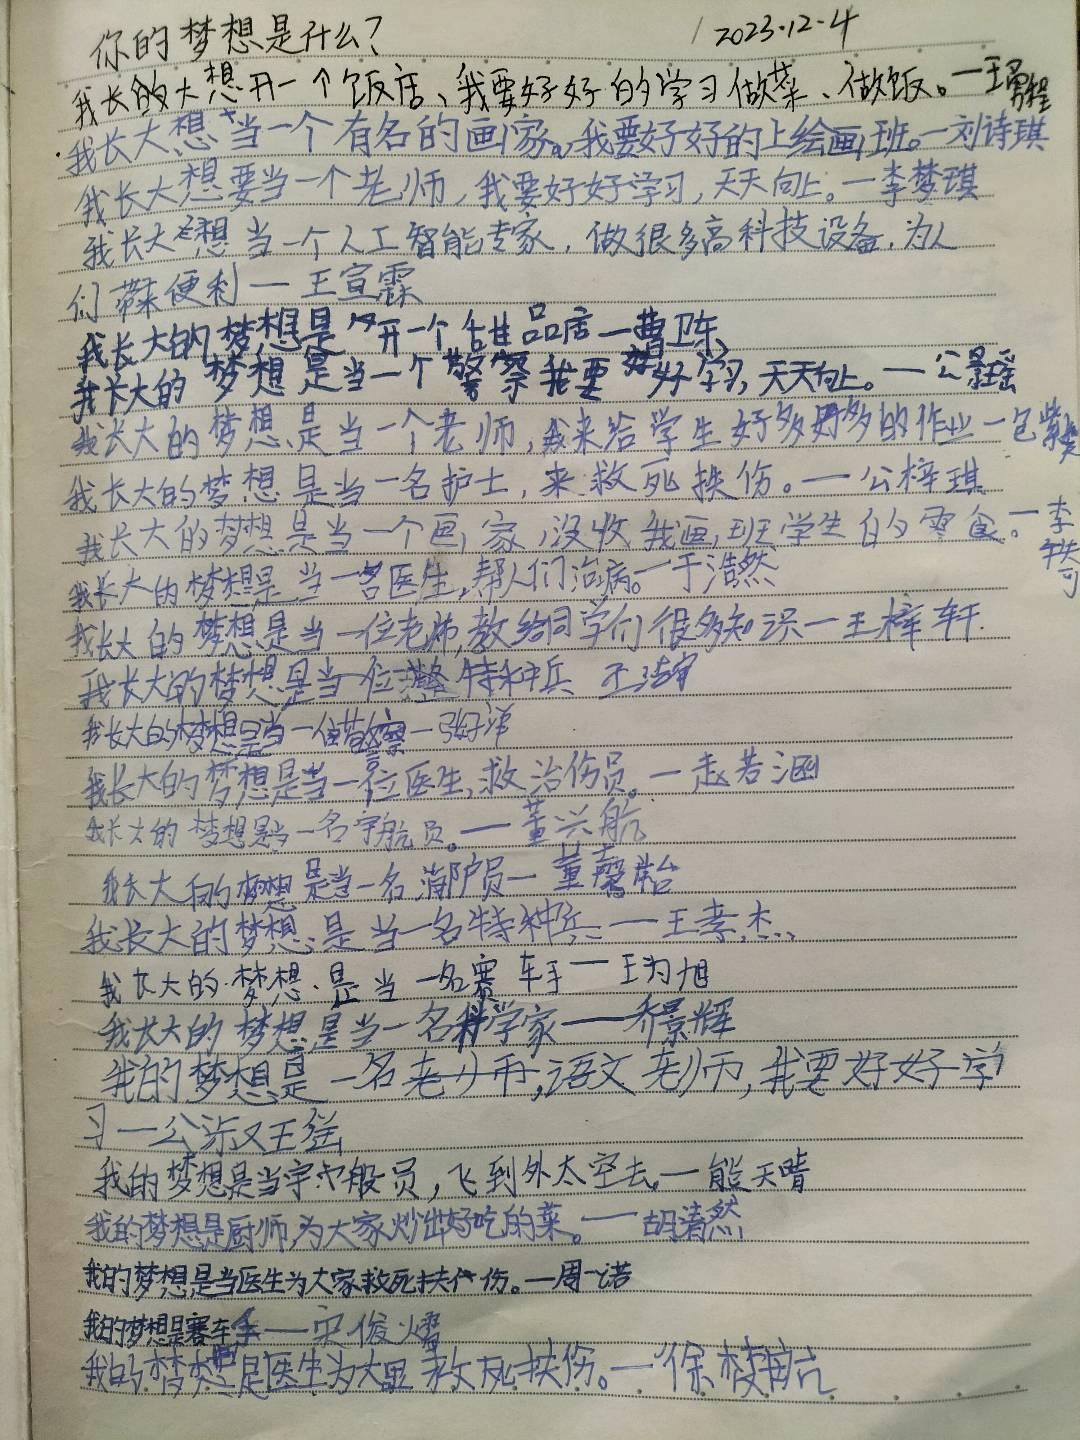 你的梦想是什么？ 2023.12.4
我长的大想开一个饭店、我要好好的学习做菜、做饭。一王
我长大想当一个有名的画家。我要好好的上绘画班。一刘诗琪
我长大想要当一个老师，我要好好学习，天天向上。一李梦琪
我长大想当一个人工智能专家，做很多高科技设备，为人
们带来便利一王宣霖
我长大的梦想是开一个品店一曹卫东
我长大的梦想是当一个警察我要好好学习，天天向上。一公景瑶
我长大的梦想是当一个老师，我来给学生好多好多的作业一包紫
我长大的梦想是当一名护士，来救死扶伤。一公梓琪
我长大的梦想是当一个画家，没收我画班学生的零食。一李
可
我长大的梦想是当一名医生，帮人们治病。一于浩然
我长大的梦想是当一位老师，教给同学们很多知识一王梓轩
我长大的梦想是当一位特种兵
我长大的梦想是当一位警察一张好洋
我长大的梦想是当一位医生，救治伤员。一赵若涵
我长大的梦想是当一名宇航员。一董兴航
我长大的梦想是当一名消防员一董馨
我长大的梦想是当一名特种兵一王孝杰
我长大的梦想是当一名赛车手一王为旭
我长大的梦想是当一名科学家一乔景辉
我的梦想是一名老师，语文老师，我要好好学
习一公
我的梦想是当宇航员，飞到外太空去一熊天晴
我的梦想是厨师，为大家炒出好吃的菜。一胡清然
我的梦想是当医生为大家救死扶伤。一周一诺
我的梦想是赛车手一宋俊熠
我的梦想是医生为大里救死扶伤。一徐